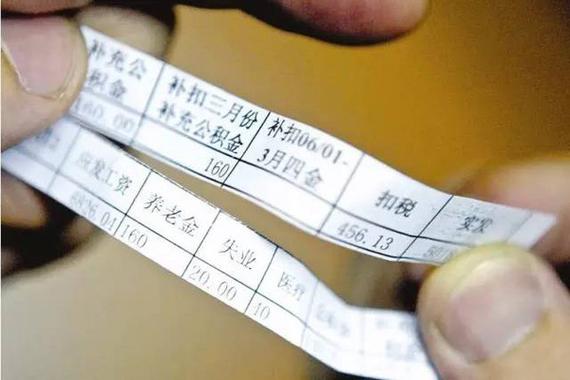 补充公积金 补扣三月份补充公积金 补扣06/01-3月四金 扣税 实发
160.00 160 456.13
应发工资 养老金 失业 医疗
6826.04 160 20.00 40